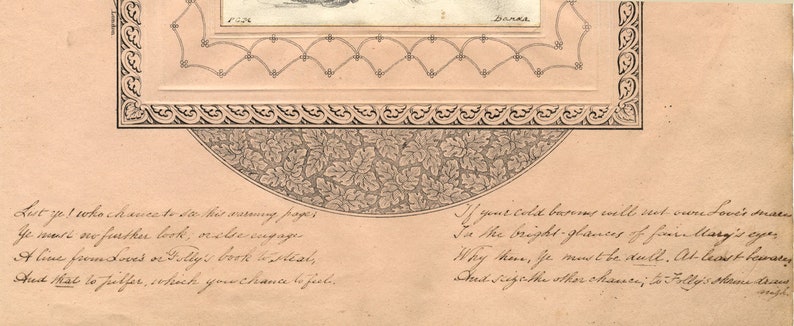 London.
P.G.H.
Banda
List ye! who chance to see this warning page;
Ye must no further look, or else engage
A line from Love's or Folly's book to steal,
And that to pilfer, which you chance to feel.
If your cold bosoms will not own Love's
In the bright-glances of fair Mary's eyes,
Why then, ye must be dull. At least beware,
And seize the other chance; to Folly's shrine draw
nigh.